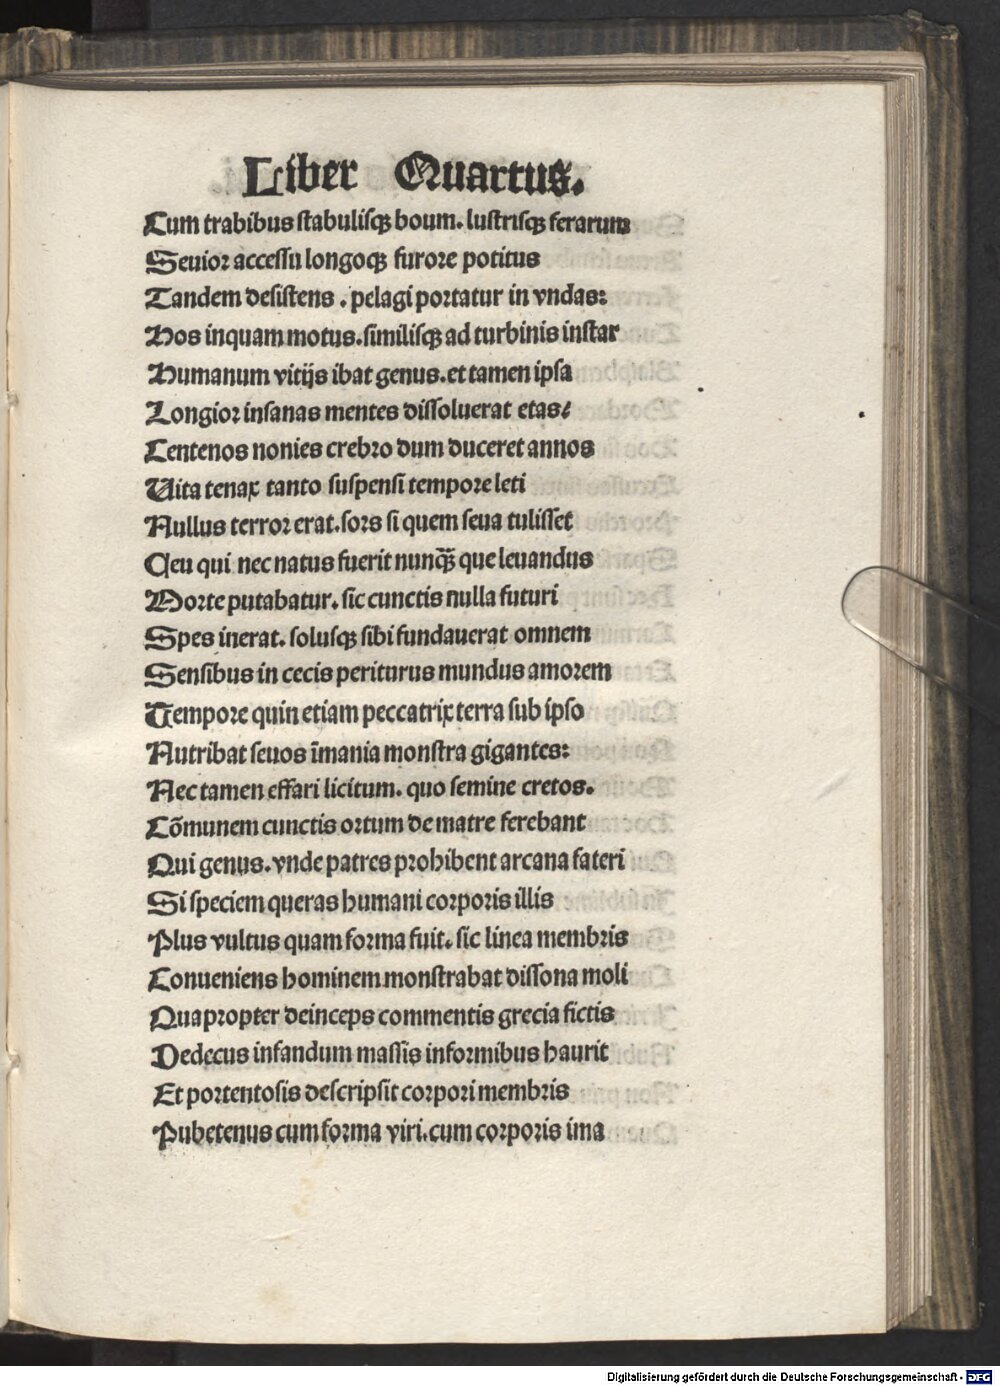 Liber Quartus.
Cum trabibus stabulisqꝫ boum. lustrisqꝫ ferarum
Seuior accessu longoqꝫ furore potitus
Tandem desistens . pelagi portatur in vndas:
Hos inquam motus. similisqꝫ ad turbinis instar
Humanum vitijs ibat genus. et tamen ipsa
Longior insanas mentes dissoluerat etas:
Centenos nonies crebro dum duceret annos
Uita tenax tanto suspensi tempore leti
Nullus terror erat. sors si quem seua tulisset
Ceu qui nec natus fuerit nunqꝫ̃ que leuandus
Morte putabatur. sic cunctis nulla futuri
Spes inerat. solusqꝫ sibi fundauerat omnem
Sensibus in cecis periturus mundus amorem
Tempore quin etiam peccatrix terra sub ipso
Nutribat seuos īmania monstra gigantes:
Nec tamen effari licitum. quo semine cretos.
Cõmunem cunctis ortum de matre ferebant
Qui genus. vnde patres prohibent arcana fateri
Si speciem queras humani corporis illis
Plus vultus quam forma fuit. sic linea membris
Conueniens hominem monstrabat dissona moli
Quapropter deinceps commentis grecia fictis
Dedecus infandum massis informibus haurit
Et portentosis descripsit corpori membris
Pubetenus cum forma viri. cum corporis ima
Digitalisierung gefördert durch die Deutsche Forschungsgemeinschaft - DFG